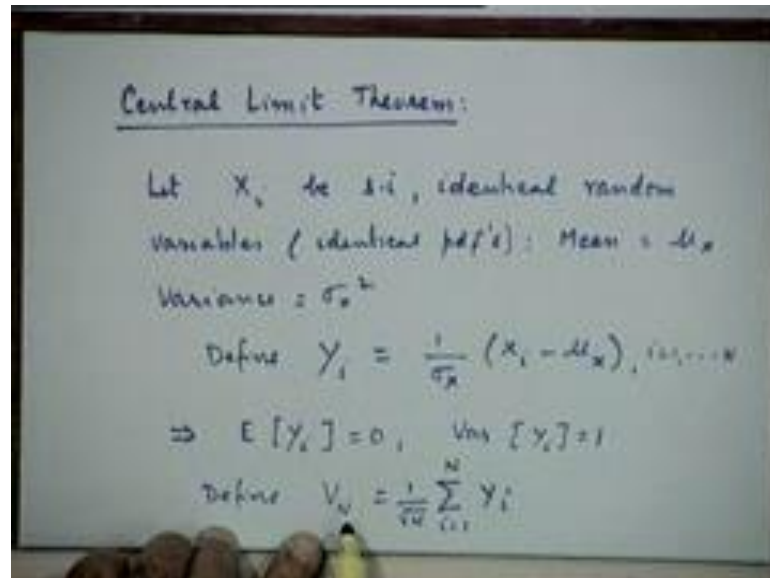 Central Limit Theorem:
Let Xᵢ be s.i, identical random
variables (identical pdf's): Mean = μₓ
Variance = σₓ²
Define Yᵢ = 1/σₓ (Xᵢ - μₓ), i=1,...N
⇒ E[Yᵢ]=0, Var [Yᵢ]=1
Define V_N = 1/√N ∑_{i=1}^{N} Yᵢ